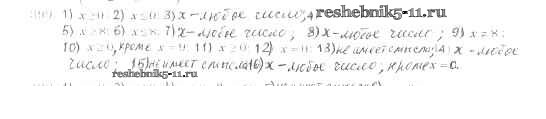 1) x≥0; 2) x≤0; 3) x - любое число; 4) reshebnik5-11.ru
5) x≥8; 6) x≤8; 7) x - любое число; 8) x - любое число; 9) x=8;
10) x≥0, кроме x=9; 11) x≥0; 12) x=0; 13) не имеет смысла; 14) x - любое
число; 15) не имеет смысла; 16) x - любое число, кроме x=0.
reshebnik5-11.ru